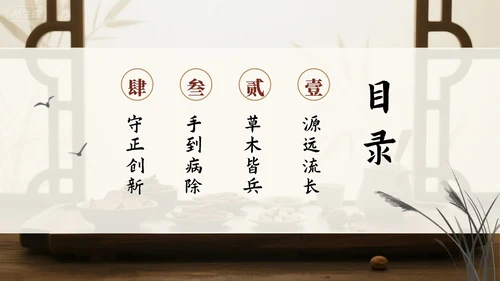 目录
壹
源远流长
贰
草木皆兵
叁
手到病除
肆
守正创新